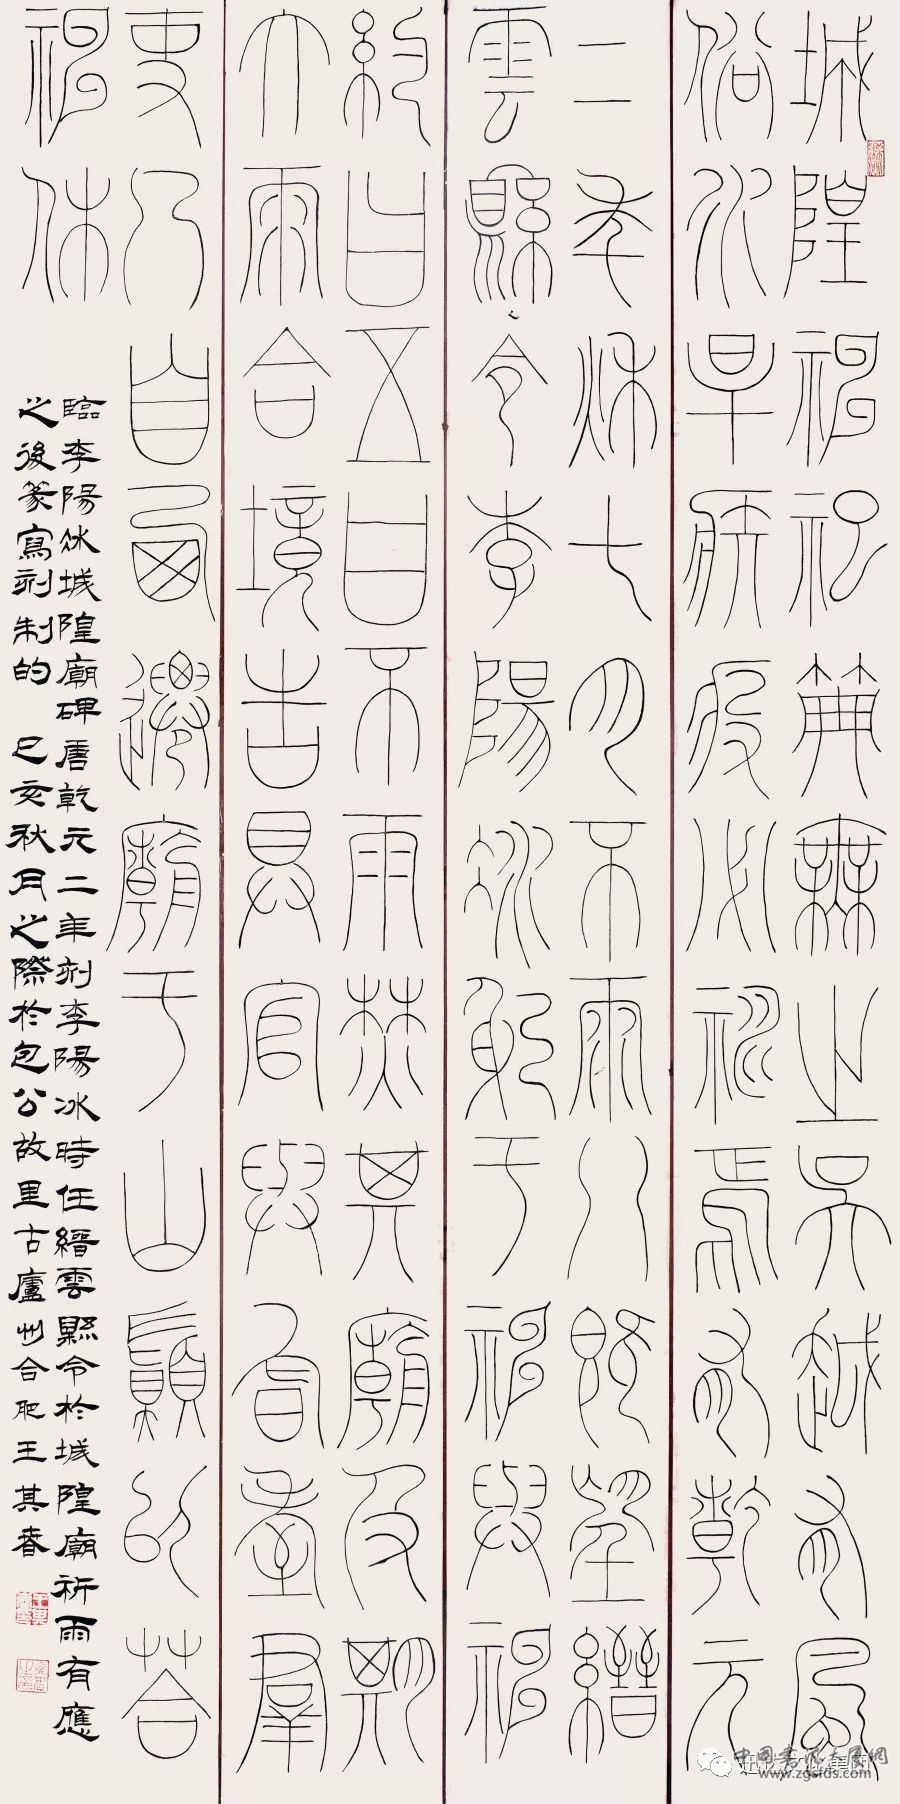 城隍神祀典無之吳越有風
俗水旱疾疫必禱焉有乾元
二年秋七月不雨八既望縉
雲縣令李陽冰躬于神與神
約曰五日不雨焚其廟及期
大雨合境告具官與耆耋群
吏乃自西遷廟于山巔以答
神休
臨李陽冰城隍廟碑唐乾元二年刻李陽冰時任縉雲縣令於城隍廟祈雨有應
之後篆寫刻制的 己亥秋月之際於包公故里古廬州合肥王其春
www.zgsfds.com